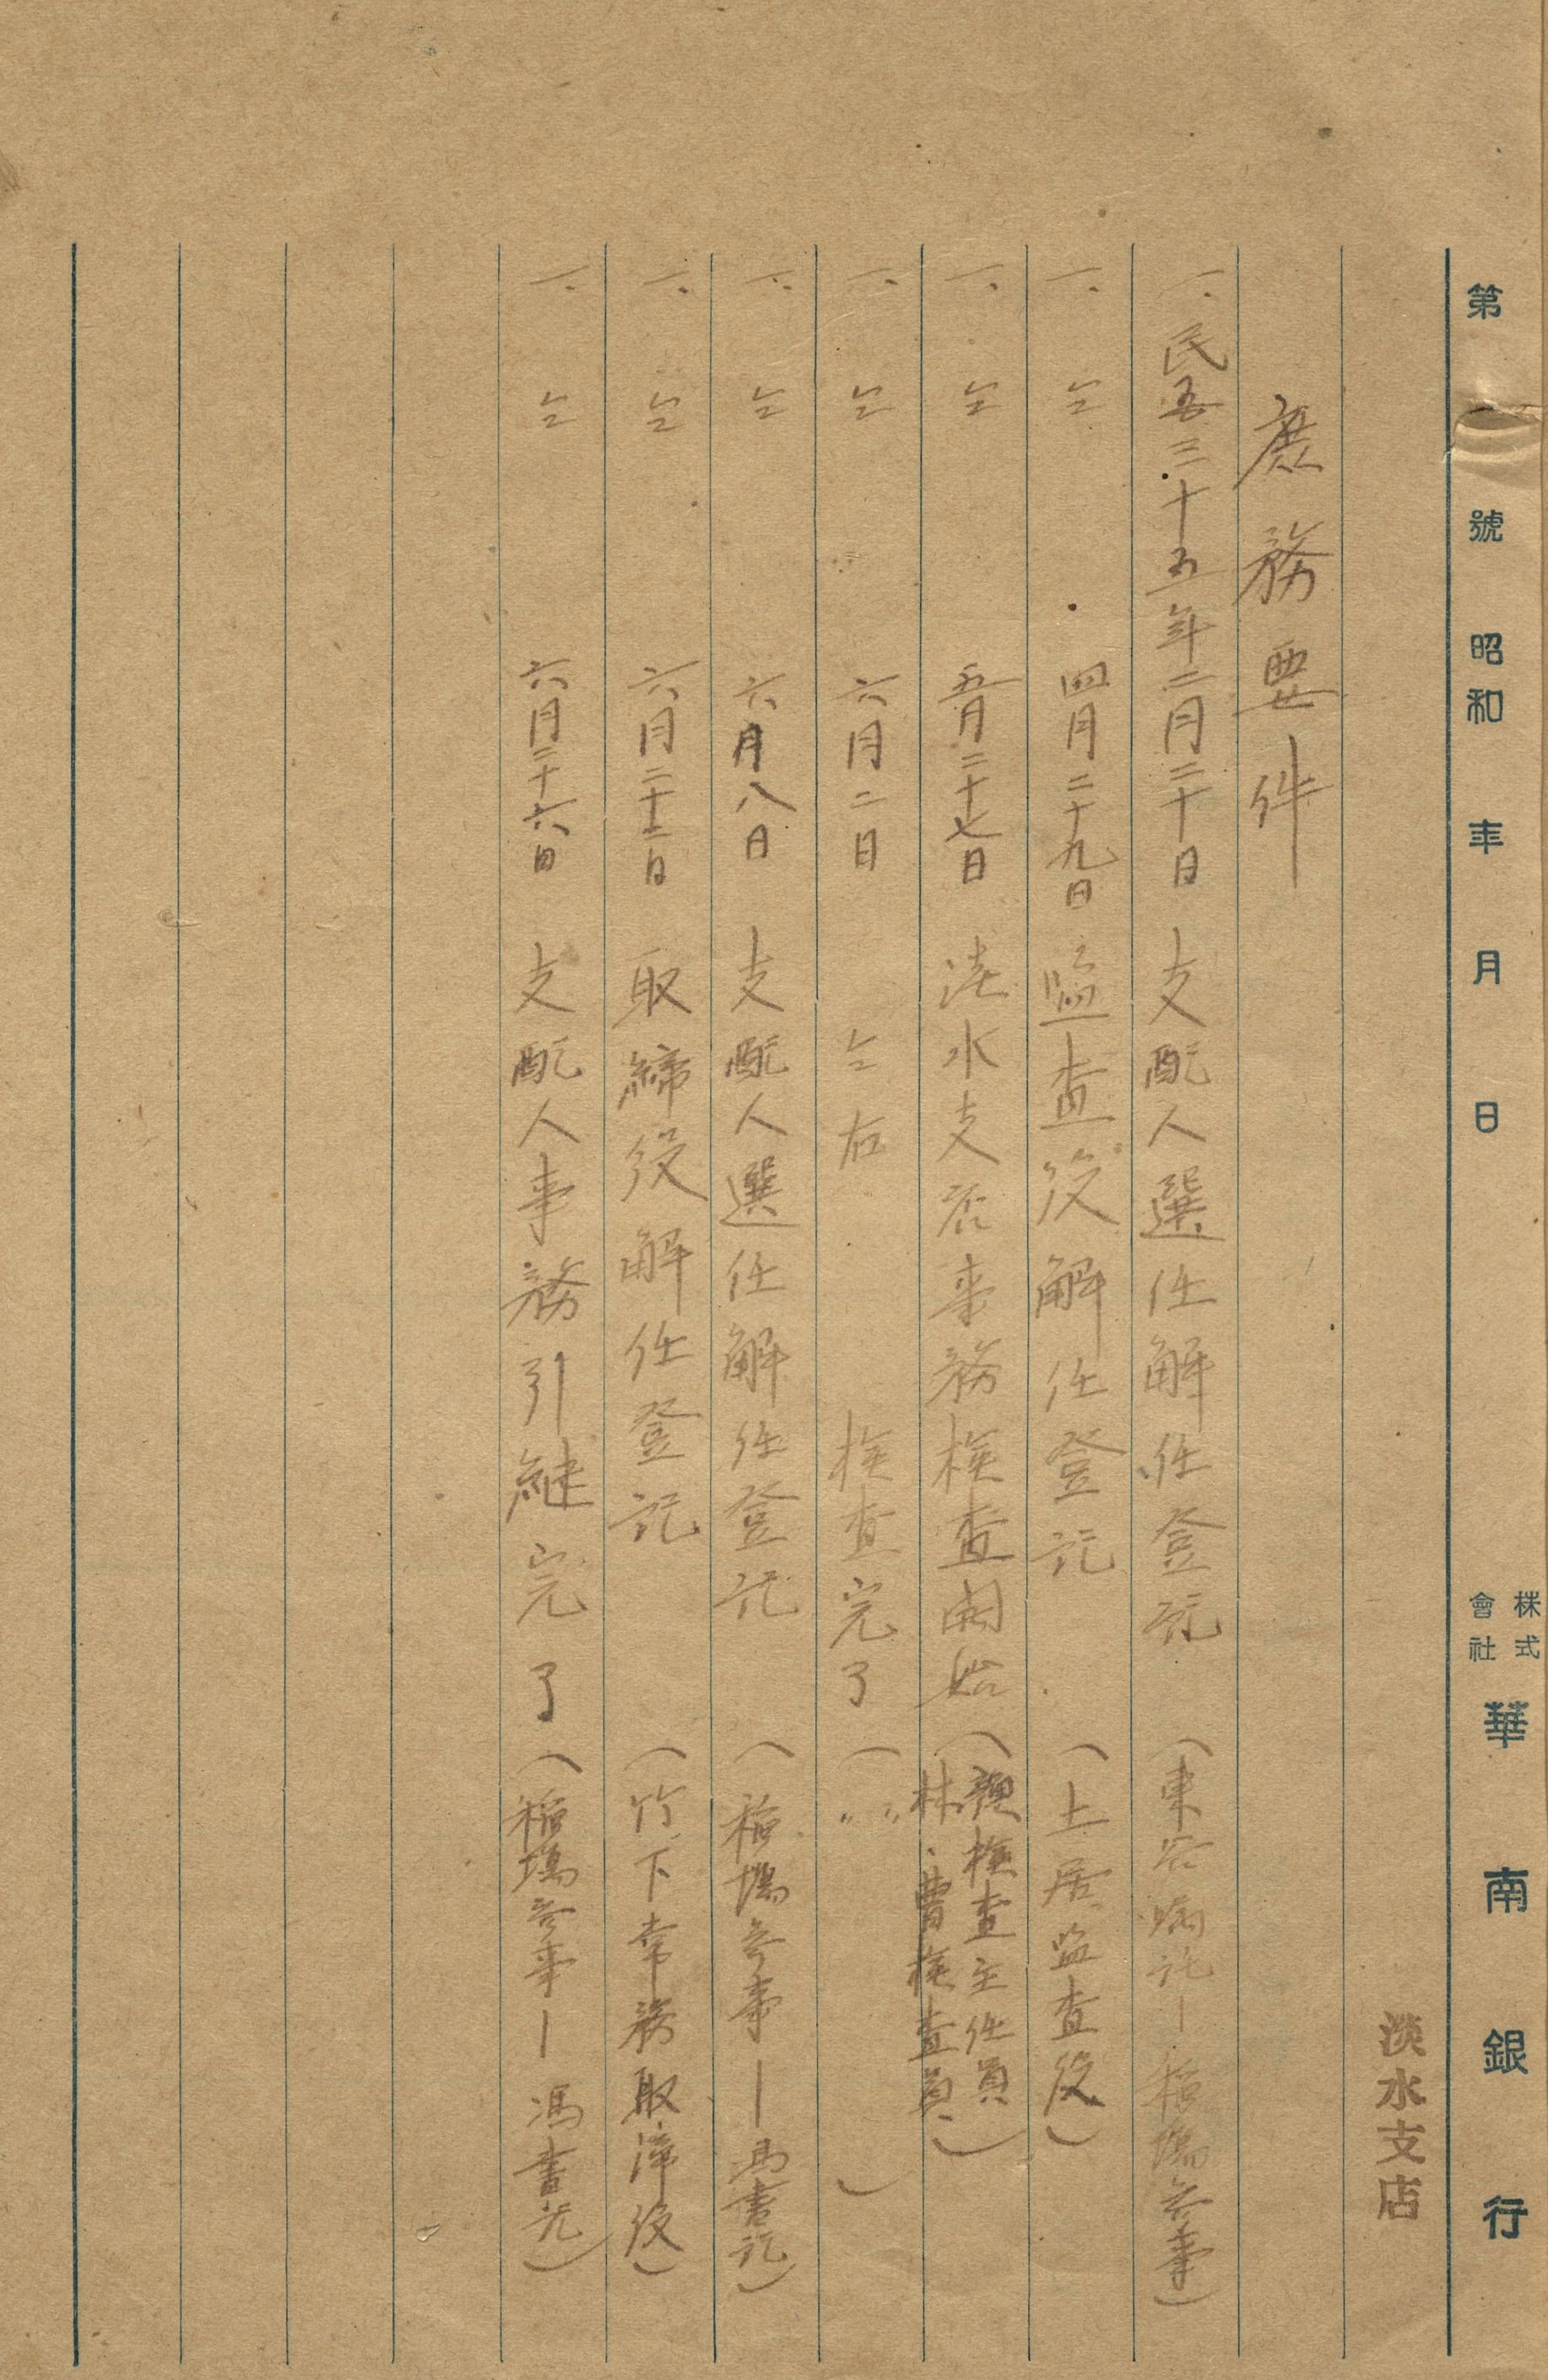 第 號 昭和 年 月 日 株式會社 華南銀行
淡水支店
庶務要件
一、民國三十五年二月二十日 支配人選任解任登記 (東谷嘱託―稲塲参事)
一、仝 四月二十九日 監査役解任登記 (土居監査役)
一、仝 五月二十七日 淡水支店事務検査開始 (検査主任員
林、曹検査員)
一、仝 六月二日 仝右 検査完了 ( 〃 〃 )
一、仝 六月八日 支配人選任解任登記 (稲塲参事―馮書記)
一、仝 六月二十二日 取締役解任登記 (竹下常務取締役)
一、仝 六月二十六日 支配人事務引継完了 (稲塲参事―馮書記)